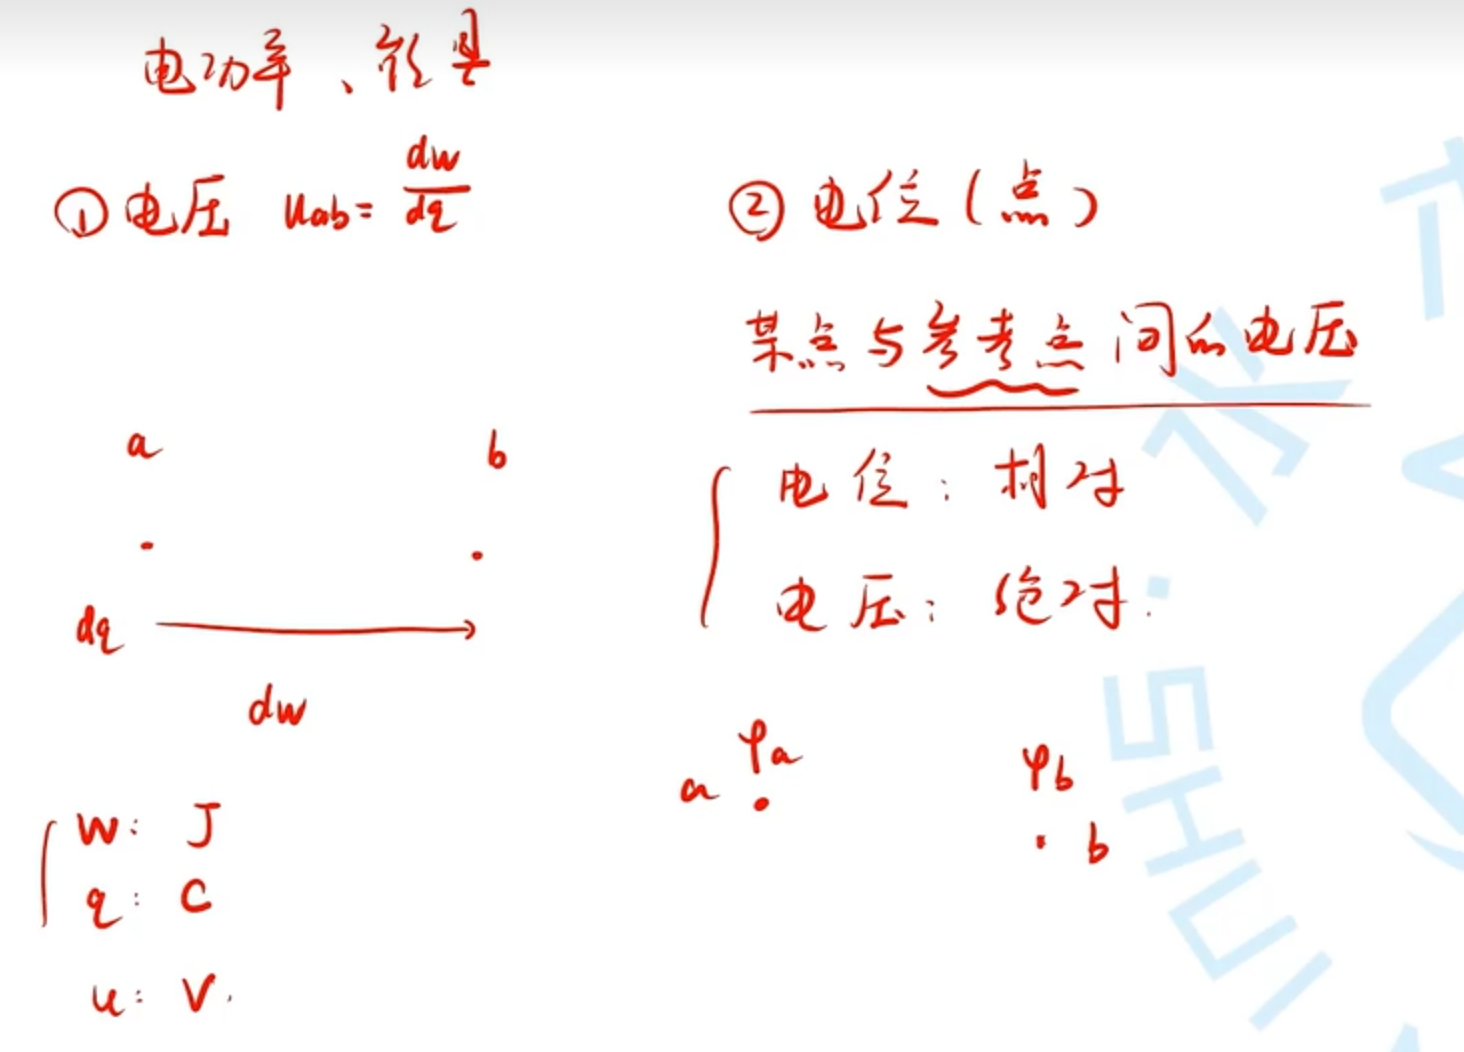 电功率、能量
① 电压 uab = dw/dq
a b
dq
dw
w: J
q: C
u: V.
② 电位 (点)
某点与参考点间的电压
电位: 相对
电压: 绝对.
a φa
φb
b